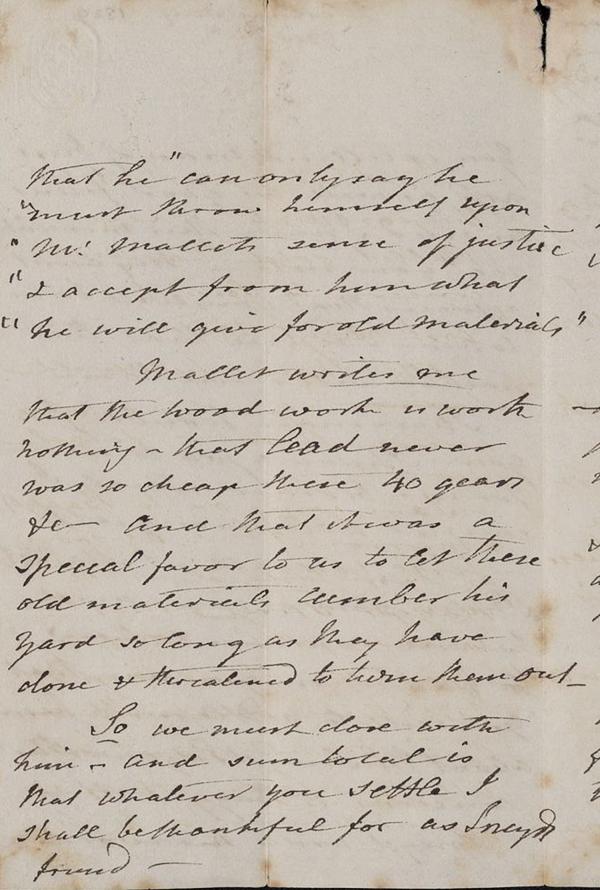 that he "can only say he
"must throw himself upon
"Mr. Mallet's sense of justice
"& accept from him what
"he will give for old materials"
Mallet writes me
that the wood work is worth
nothing - that lead never
was so cheap these 40 years
&c - And that it was a
special favor to us to let these
old materials cumber his
yard so long as they have
done & threatened to turn them out -
So we must close with
him - and sum total is
that whatever you settle I
shall be thankful for as Sneyd's
friend -